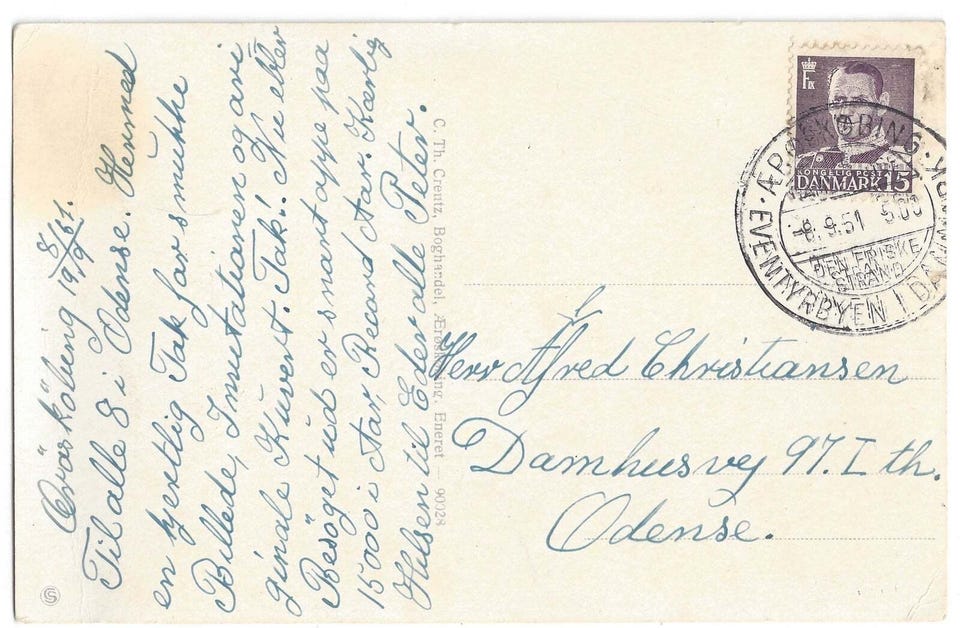 Ærösköbing 19 8/9 51.
Til alle 8 i Odense. Hermed
en hjertlig Tak for smukke
Billede, Imutationen og ori
ginale Kuvert. Tak! Nu blev
Besöget ud er snart oppe paa
15000 i Aar, Recard Aar. Kærlig
Hilsen til Eder alle Peter.
C. Th. Creutz, Boghandel, Ærøskøbing. Eneret — 90028
FIX
KONGELIG POST
DANMARK 15
ÆRØSKØBING
-8.9.51 5.00
DEN FRISKE
STRAND
EVENTYRBYEN I DANMARK
Herr Alfred Christiansen
Damhusvej 97. I th.
Odense.